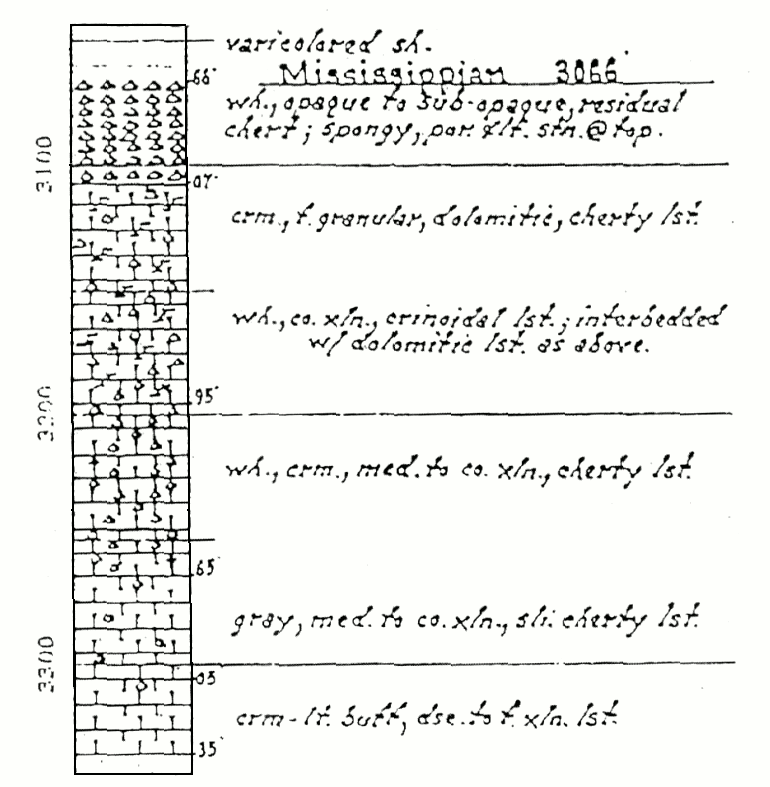 varicolored sh.
66'
Mississippian 3066'
wh., opaque to sub-opaque, residual
chert; spongy, por. & lt. stn. @ top.
3100
07'
crm., f. granular, dolomitic, cherty lst.
wh., co. xln., crinoidal lst.; interbedded
w/ dolomitic lst. as above.
95'
3200
wh., crm., med. to co. xln., cherty lst.
65'
gray, med. to co. xln., sli. cherty lst.
3300
03'
crm - lt. buff, dse. to f. xln. lst.
35'